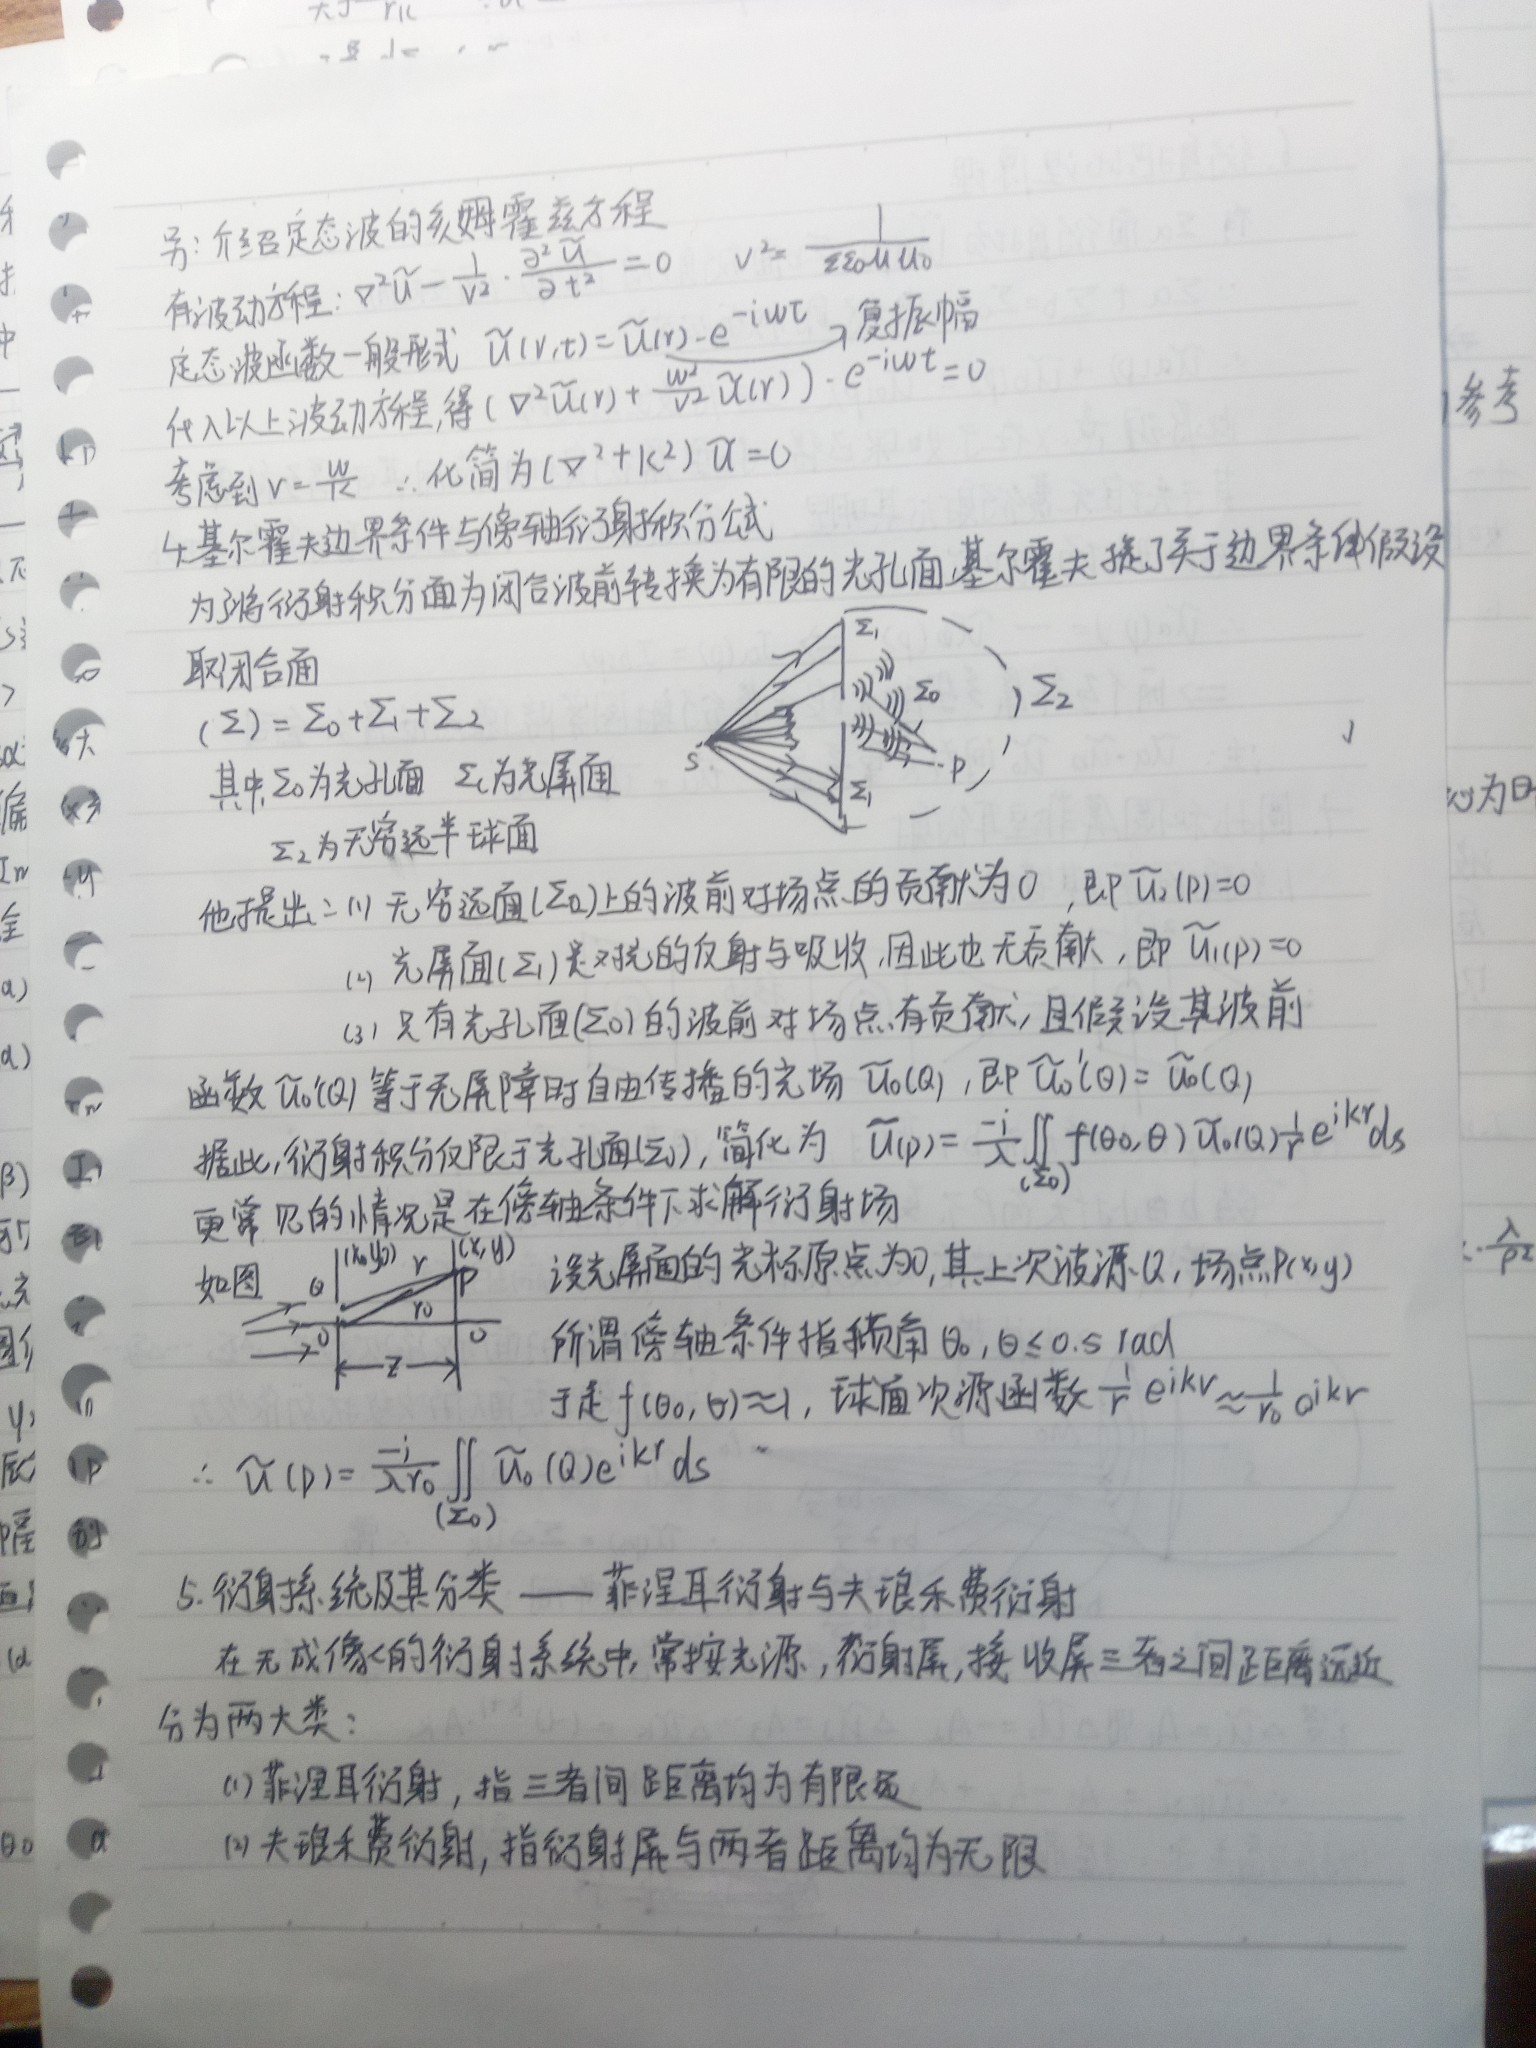 另:介绍定态波的亥姆霍兹方程
有波动方程: ∇²ũ − 1/v² · ∂²ũ/∂t² = 0   v² = 1/(εε0μμ0)
定态波函数一般形式 ũ(r,t) = ũ(r)·e^{-iωt} → 复振幅
代入以上波动方程,得(∇²ũ(r) + ω²/v² ũ(r))·e^{-iωt} = 0
考虑到 v = ω/k ∴化简为(∇²+k²)ũ=0
4.基尔霍夫边界条件与傍轴衍射积分公式
为了将衍射积分面为闭合波前转换为有限的光孔面,基尔霍夫提了关于边界条件假设
取闭合面
(Σ) = Σ0+Σ1+Σ2
其中,Σ0为光孔面 Σ1为光屏面
Σ2为无穷远半球面
Σ1
Σ0
Σ2
S
P
Σ1
他提出: (1) 无穷远面(Σ2)上的波前对场点的贡献为0, 即ũ2(P)=0
(2) 光屏面(Σ1)是对光的反射与吸收,因此也无贡献, 即ũ1(P)=0
(3) 只有光孔面(Σ0)的波前对场点有贡献, 且假设其波前
函数ũ0'(Q)等于无屏障时自由传播的光场ũ0(Q), 即ũ0'(Q)=ũ0(Q)
据此,衍射积分仅限于光孔面(Σ0), 简化为 ũ(P) = -i/λ ∬(Σ0) f(θ0,θ) ũ0(Q) 1/r e^{ikr} ds
更常见的情况是在傍轴条件下求解衍射场
如图
(x0,y0) r (x,y)
Q P
r0
0 0
z
设光屏面的光标原点为0,其上次波源Q, 场点P(x,y)
所谓傍轴条件指 角θ0, θ≤0.5 rad
于是 f(θ0,θ)≈1, 球面次源函数 1/r e^{ikr} ≈ 1/r0 e^{ikr}
∴ ũ(P) = -i/(λr0) ∬(Σ0) ũ0(Q)e^{ikr} ds
5.衍射系统及其分类 —— 菲涅耳衍射与夫琅禾费衍射
在无成像的衍射系统中,常按光源, 衍射屏, 接收屏三者之间距离远近
分为两大类:
(1) 菲涅耳衍射, 指三者间距离均为有限远
(2) 夫琅禾费衍射, 指衍射屏与两者距离均为无限
参考